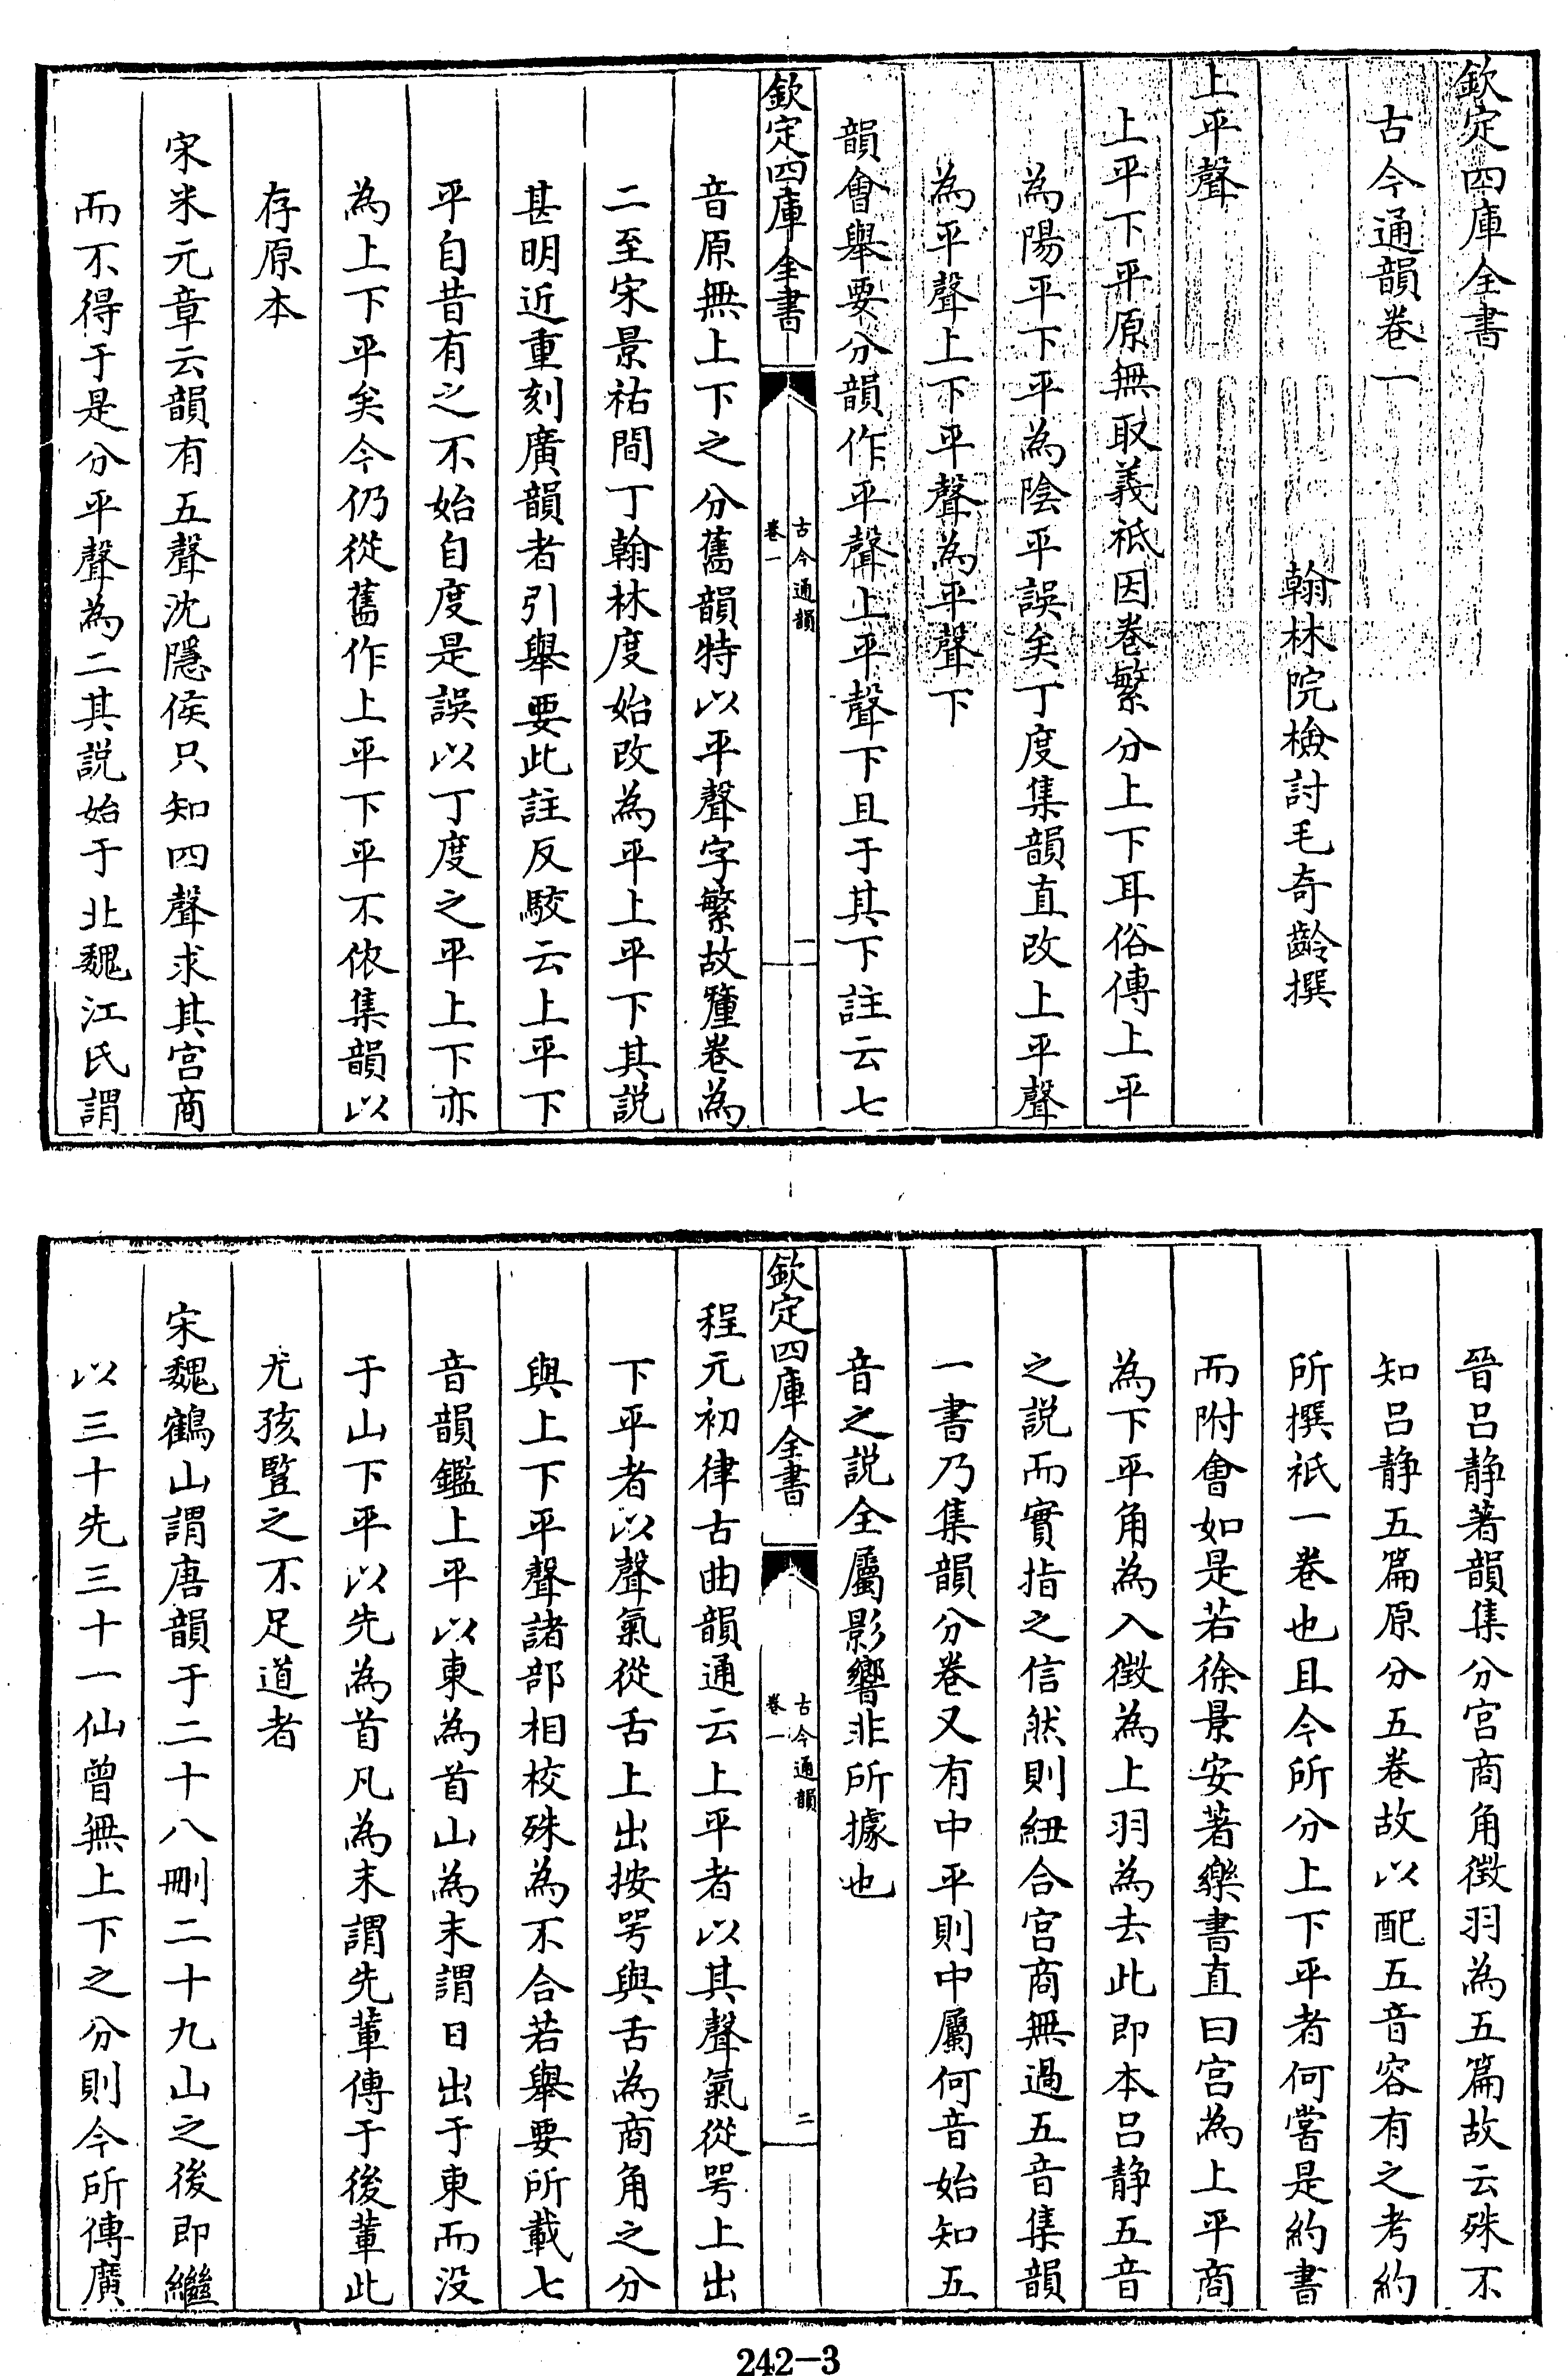 欽定四庫全書
古今通韻卷一
翰林院檢討毛奇齡撰
上平聲
上平下平原無取義祗因卷繁分上下耳俗傳上平
為陽平下平為陰平誤矣丁度集韻直改上平聲
為平聲上下平聲為平聲下
韻會舉要分韻作平聲上平聲下且于其下註云七
欽定四庫全書
古今通韻
卷一
一
音原無上下之分舊韻特以平聲字繁故釐卷為
二至宋景祐間丁翰林度始改為平上平下其説
甚明近重刻廣韻者引舉要此註反駮云上平下
平自昔有之不始自度是誤以丁度之平上下亦
為上下平矣今仍從舊作上平下平不依集韻以
存原本
宋米元章云韻有五聲沈隱侯只知四聲求其宫商
而不得于是分平聲為二其説始于北魏江氏謂
晉吕静著韻集分宫商角徴羽為五篇故云殊不
知吕静五篇原分五卷故以配五音容有之考約
所撰祇一卷也且今所分上下平者何嘗是約書
而附會如是若徐景安著樂書直曰宫為上平商
為下平角為入徴為上羽為去此即本吕静五音
之説而實指之信然則紐合宫商無過五音集韻
一書乃集韻分卷又有中平則中屬何音始知五
音之説全屬影響非所據也
欽定四庫全書
古今通韻
卷一
二
程元初律古曲韻通云上平者以其聲氣從咢上出
下平者以聲氣從舌上出按咢與舌為商角之分
與上下平聲諸部相校殊為不合若舉要所載七
音韻鑑上平以東為首山為末謂日出于東而没
于山下平以先為首凡為末謂先軰傳于後軰此
尤孩豎之不足道者
宋魏鶴山謂唐韻于二十八刪二十九山之後即繼
以三十先三十一仙曾無上下之分則今所傳廣
242-3